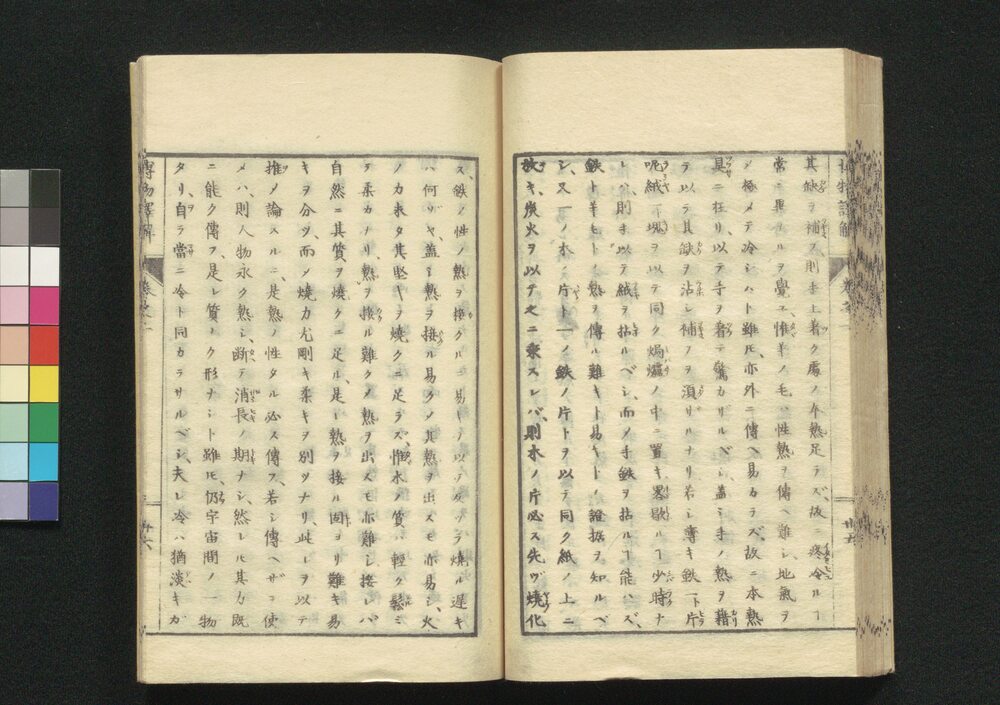 其缺ヲ補フ則手上着ク處ノ本熱足ラズ故ニ疼冷ルヿ
常ニ異ナルヲ覺ユ惟羊ノ毛ハ性熱ヲ傳ヘ難シ地氣ヲ
メ極メテ冷シハト雖𪜈亦外ニ傳ヘ易カラズ故ニ本熱
具ニ在リ以テ手ヲ着テ驚カザルベシ蓋シ手ノ熱ヲ藉
テ以ラ其缺ヲ沾シ補ヲ須リルナリ若シ薄キ鉄一片
呢絨一塊ヲ以テ同ク焗爐ノ中ニ置キ畧歇ルヿ少時ナ
レハ則手以テ絨ヲ拈ルベシ而ノ手鉄ヲ拈ルヿ能ハズ
鉄ト羊毛ト熱ヲ傳ル難キト易キトノ證據ヲ知ルベ
シ又一ノ木ノ片ト一ノ鉄ノ片トヲ以テ同ク紙ノ上ニ
放キ炭火ヲ以テ之ニ乗スレバ則木ノ片必ス先ヅ燒化
ス鉄ノ性ノ熱ヲ接クル易キヲ以テ反テ燒ル遲キ
ハ何ゾヤ蓋シ熱ヲ接ル易クメ其熱ヲ出スモ亦易シ火
ノ力未タ其堅キヲ燒クニ足ラズ惟木ノ質ハ輕ク鬆ミ
テ柔カナリ熱ヲ接ル難クメ熱ヲ出スモ亦難シ接レバ
自然ニ其質ヲ燒クニ足ル是レ熱ヲ接ル固ヨリ難キ易
キヲ分ツ而メ燒力尤剛キ柔キヲ別ツナリ此レヲ以テ
推メ論スルニ是熱ノ性タル必ス傳フ若シ傳ヘザラ使
メハ則人物永ク熱シ断テ消長ノ期ナシ然レ𪜈其力既
ニ能ク傳フ是レ質ナク形ナシト雖𪜈仍宇宙間ノ一物
タリ自ラ當ニ冷ト同カラサルベシ夫レ冷ハ猶淡キガ
博物譯解